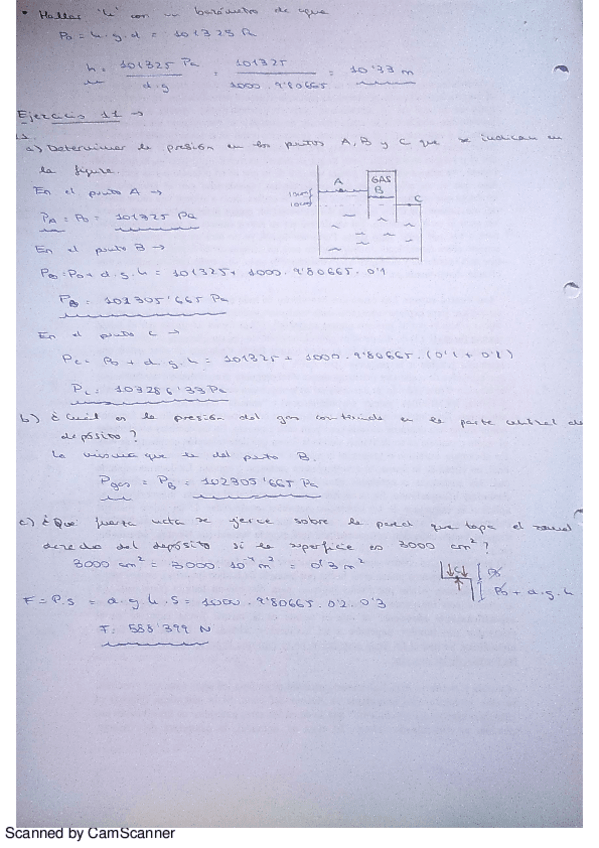 • Hallar "h" con un barómetro de agua
P0 = h . g . d = 101325 Pa
h = 101325 Pa / d . g = 101325 / 1000 . 9'80665 = 10'33 m
Ejercicio 11 →
11.
a) Determinar la presión en los puntos A, B y C que se indican en
la figura.
En el punto A →
A GAS B C
10cm
10cm
PA = P0 = 101325 Pa
En el punto B →
PB = P0 + d . g . h = 101325 + 1000 . 9'80665 . 0'1
PB = 102305'665 Pa
En el punto C →
PC = P0 + d . g . h = 101325 + 1000 . 9'80665 . (0'1 + 0'1)
PC = 103286'33 Pa
b) ¿Cuál es la presión del gas contenido en la parte central de
depósito?
La misma que la del punto B.
Pgas = PB = 102305'665 Pa
c) ¿Qué fuerza neta se ejerce sobre la pared que tapa el
derecho del depósito si la superficie es 3000 cm²?
3000 cm² = 3000 . 10⁻⁴ m² = 0'3 m²
P0
P0 + d . g . h
F = P.S = d . g . h . S = 1000 . 9'80665 . 0'2 . 0'3
F = 588'399 N
Scanned by CamScanner